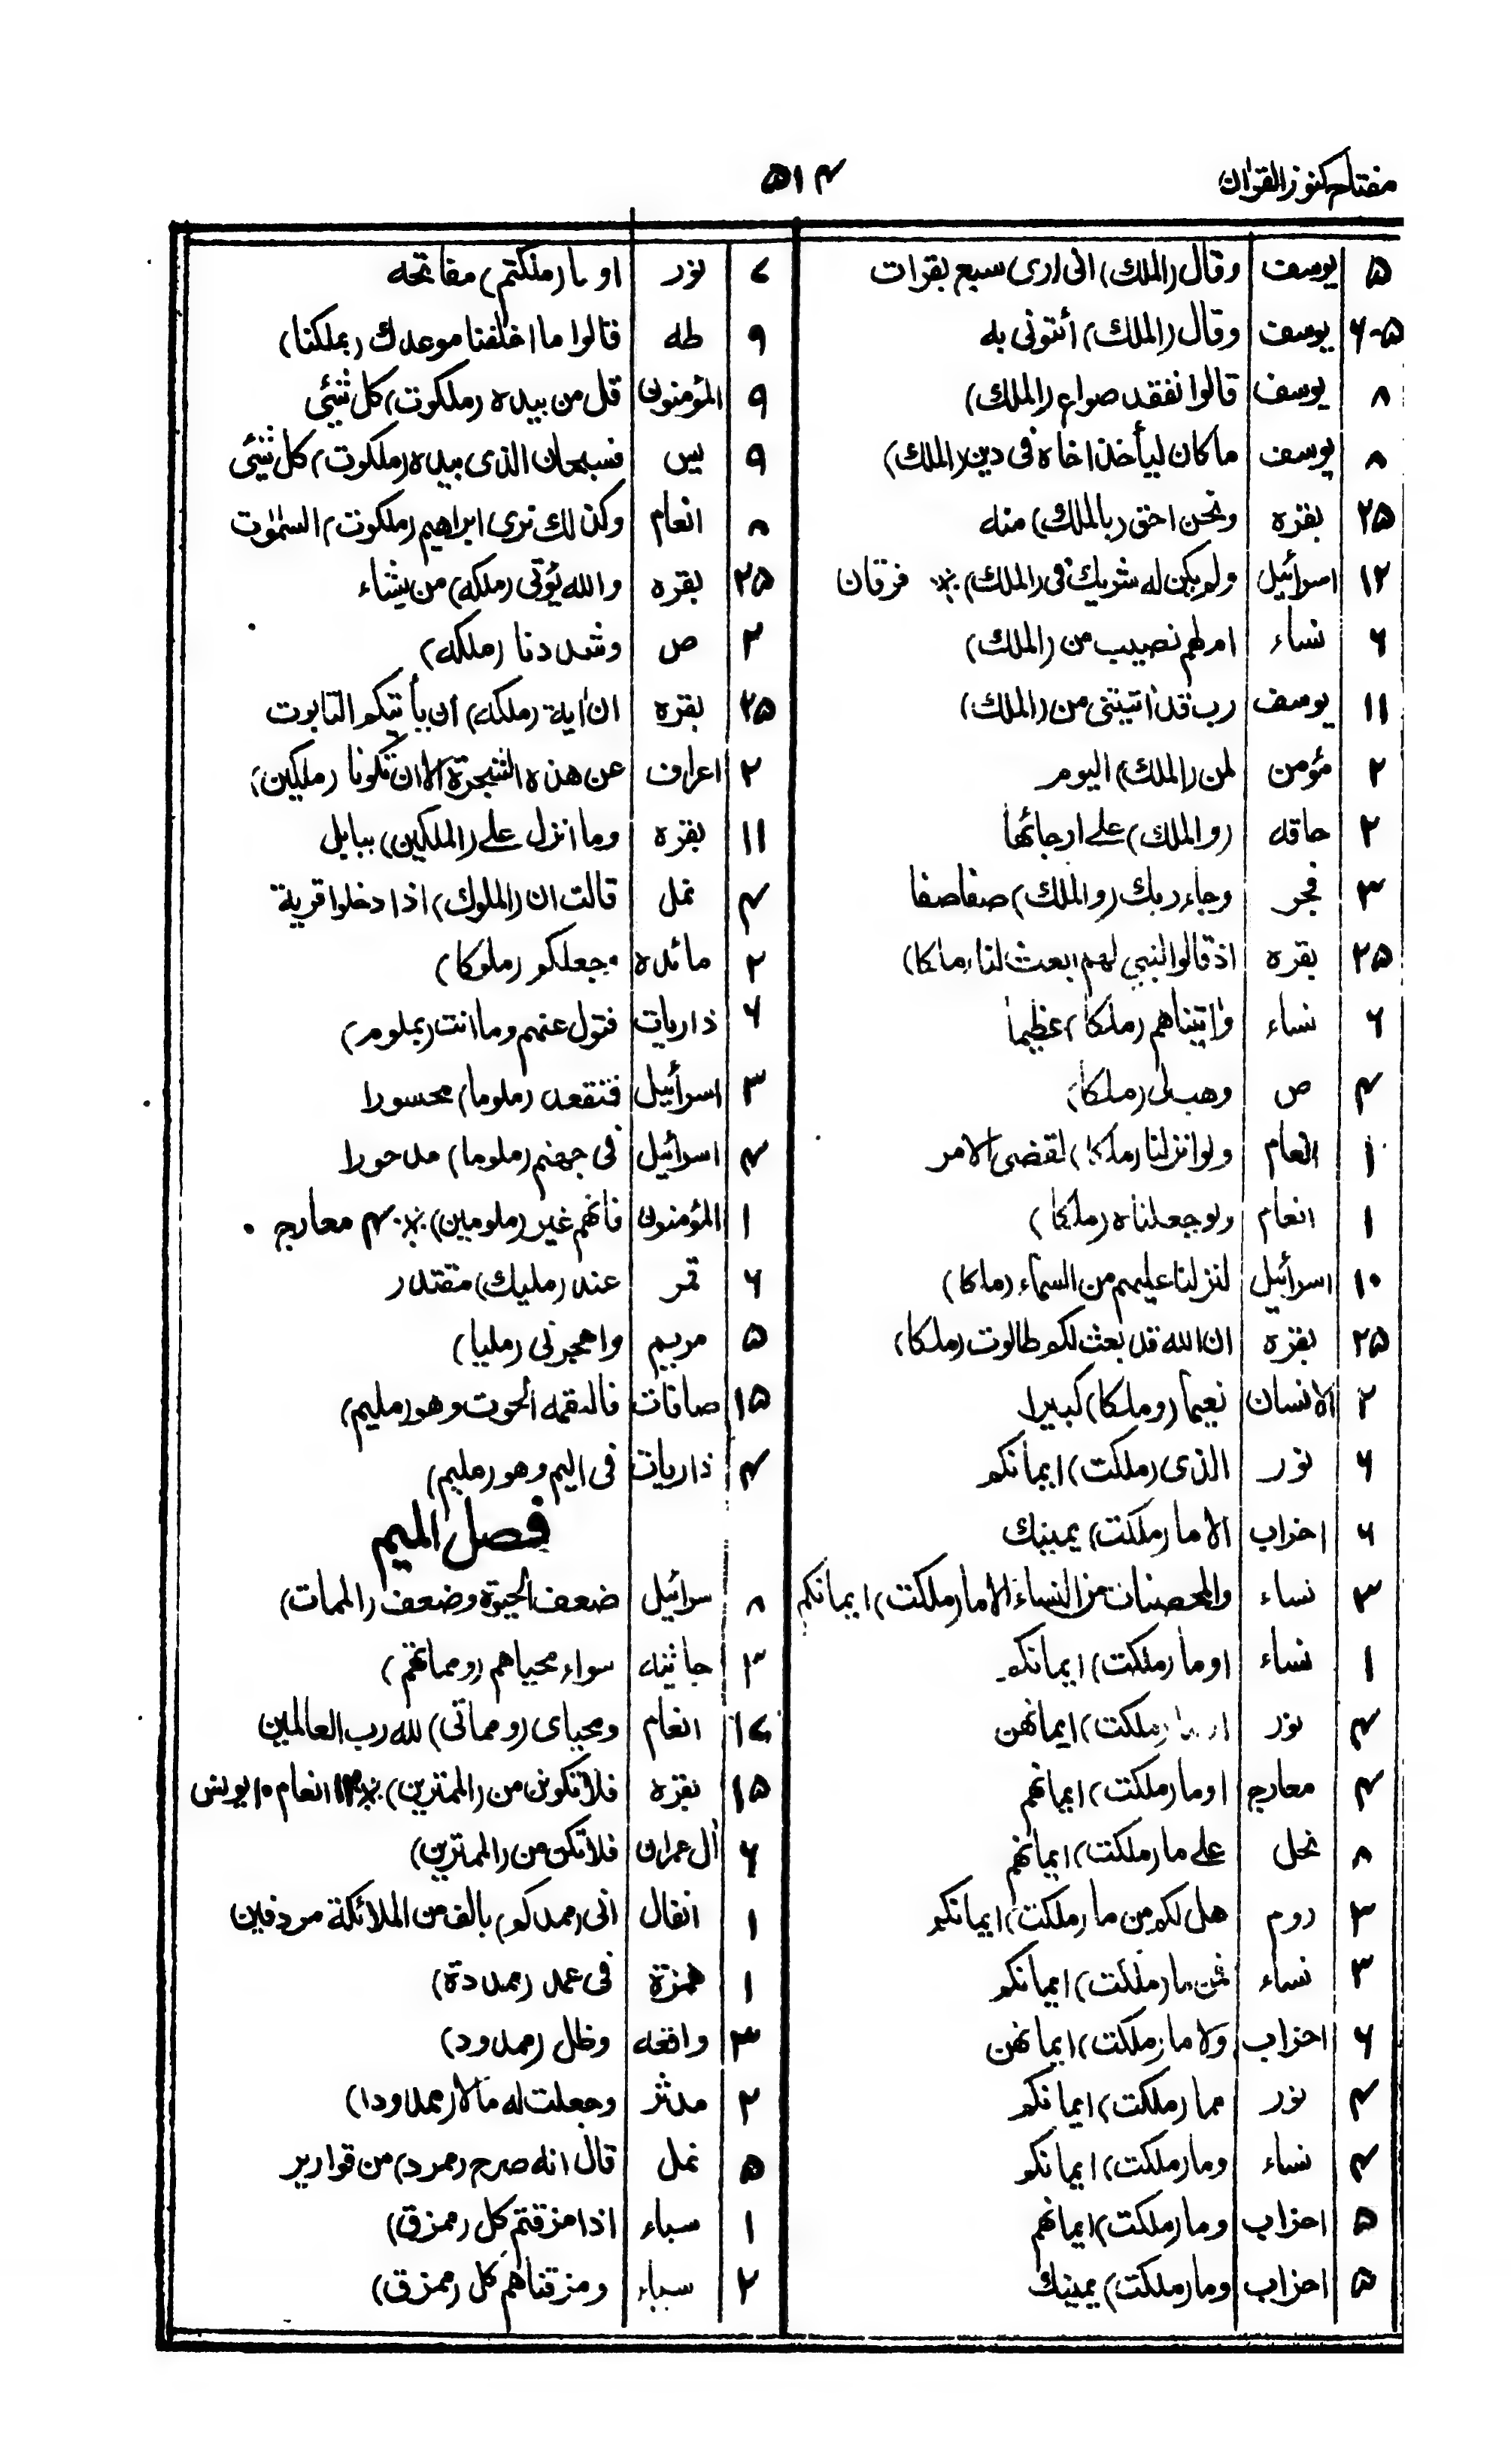 مفتاح كنوز القرآن
۵۱۴
۵ يوسف وقال (الملك) انى ارى سبع بقرات
۵-۶ يوسف وقال (الملك) أئتونى به
۸ يوسف قالوا نفقد صواع (الملك)
۸ يوسف ما كان ليأخذ اخاه فى دين (الملك)
۲۵ بقره ونحن احق (بالملك) منه
۱۲ اسرائيل ولم يكن له شريك فى (الملك) ٪ فرقان
۶ نساء ام لهم نصيب من (الملك)
۱۱ يوسف رب قد اتيتنى من (الملك)
۲ مؤمن لمن (الملك) اليوم
۲ حاقه (والملك) على ارجائها
۳ فجر وجاء ربك (والملك) صفا صفا
۲۵ بقره اذ قالوا لنبي لهم ابعث لنا (ملكا)
۶ نساء واتيناهم (ملكا) عظيما
۴ ص وهب لى (ملكا)
۱ انعام ولو انزلنا (ملكا) لقضى الامر
۱ انعام ولو جعلناه (ملكا)
۱۰ اسرائيل لنزلنا عليهم من السماء (ملكا)
۲۵ بقره ان الله قد بعث لكم طالوت (ملكا)
۲ الانسان نعيما (وملكا) كبيرا
۶ نور الذى (ملكت) ايمانكم
۶ احزاب الا ما (ملكت) يمينك
۳ نساء والمحصنات من النساء الا ما (ملكت) ايمانكم
۱ نساء او ما (ملكت) ايمانكم
۴ نور (ملكت) ايمانهن
۴ معارج او ما (ملكت) ايمانهم
۸ نحل على ما (ملكت) ايمانهم
۳ روم هل لكم من ما (ملكت) ايمانكم
۳ نساء فمن ما (ملكت) ايمانكم
۶ احزاب ولا ما (ملكت) ايمانهن
۴ نور مما (ملكت) ايمانكم
۴ نساء وما (ملكت) ايمانكم
۵ احزاب وما (ملكت) ايمانهم
۵ احزاب وما (ملكت) يمينك
۷ نور او ما (ملكتم) مفاتحه
۹ طه قالوا ما اخلفنا موعدك (بملكنا)
۹ المؤمنون قل من بيده (ملكوت) كل شئي
۹ يس فسبحان الذى بيده (ملكوت) كل شئي
۸ انعام وكذلك نرى ابراهيم (ملكوت) السمٰوٰت
۲۵ بقره والله يؤتى (ملكه) من يشاء
۲ ص وشددنا (ملكه)
۲۵ بقره ان أية (ملكه) ان يأتيكم التابوت
۲ اعراف عن هذه الشجرة الا ان تكونا (ملكين)
۱۱ بقره وما انزل على (الملكين) ببابل
۴ نمل قالت ان (الملوك) اذا دخلوا قرية
۲ مائده وجعلكم (ملوكا)
۶ ذاريات فتول عنهم وما انت (بملوم)
۳ اسرائيل فتقعد (ملوما) محسورا
۴ اسرائيل فى جهنم (ملوما) مدحورا
۱ المؤمنون فانهم غير (ملومين) ٪ ۴ معارج
۶ قمر عند (مليك) مقتدر
۵ مريم واهجرنى (مليا)
۱۵ صافات فالتقمه الحوت وهو (مليم)
۴ ذاريات فى اليم وهو (مليم)
فصل الميم
۸ سرائيل ضعف الحيوة وضعف (الممات)
۳ جاثيه سواء محياهم (ومماتهم)
۱۷ انعام ومحياى (ومماتى) لله رب العالمين
۱۵ بقره فلا تكونن من (الممترين) ٪ ۱۴ انعام ۱۰ يونس
۶ أل عمران فلا تكن من (الممترين)
۱ انفال انى (ممدكم) بالف من الملائكة مردفين
۱ همزة فى عمد (ممددة)
۳ واقعه وظل (ممدود)
۲ مدثر وجعلت له مالا (ممدودا)
۵ نمل قال انه صرح (ممرد) من قوارير
۱ سباء اذا مزقتم كل (ممزق)
۲ سباء ومزقناهم كل (ممزق)